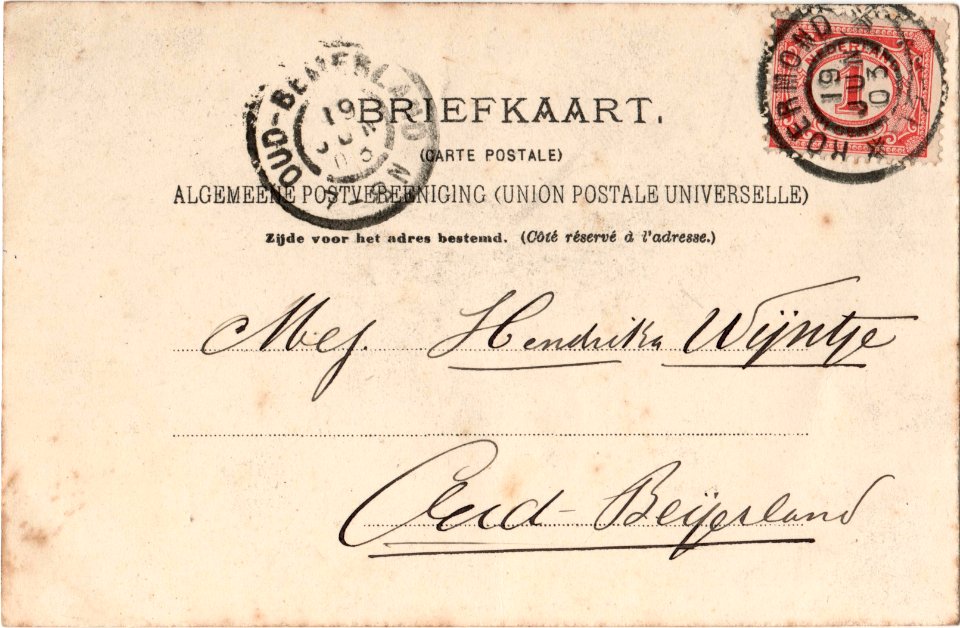 BRIEFKAART.
(CARTE POSTALE)
ALGEMEENE POSTVEREENIGING (UNION POSTALE UNIVERSELLE)
Zijde voor het adres bestemd. (Côté réservé à l'adresse.)
OUD-BEIJERLAND
19
03
ROERMOND
19 JUN 03
NEDERLAND
1
Mej. Hendrika Wijntje
Oud-Beijerland